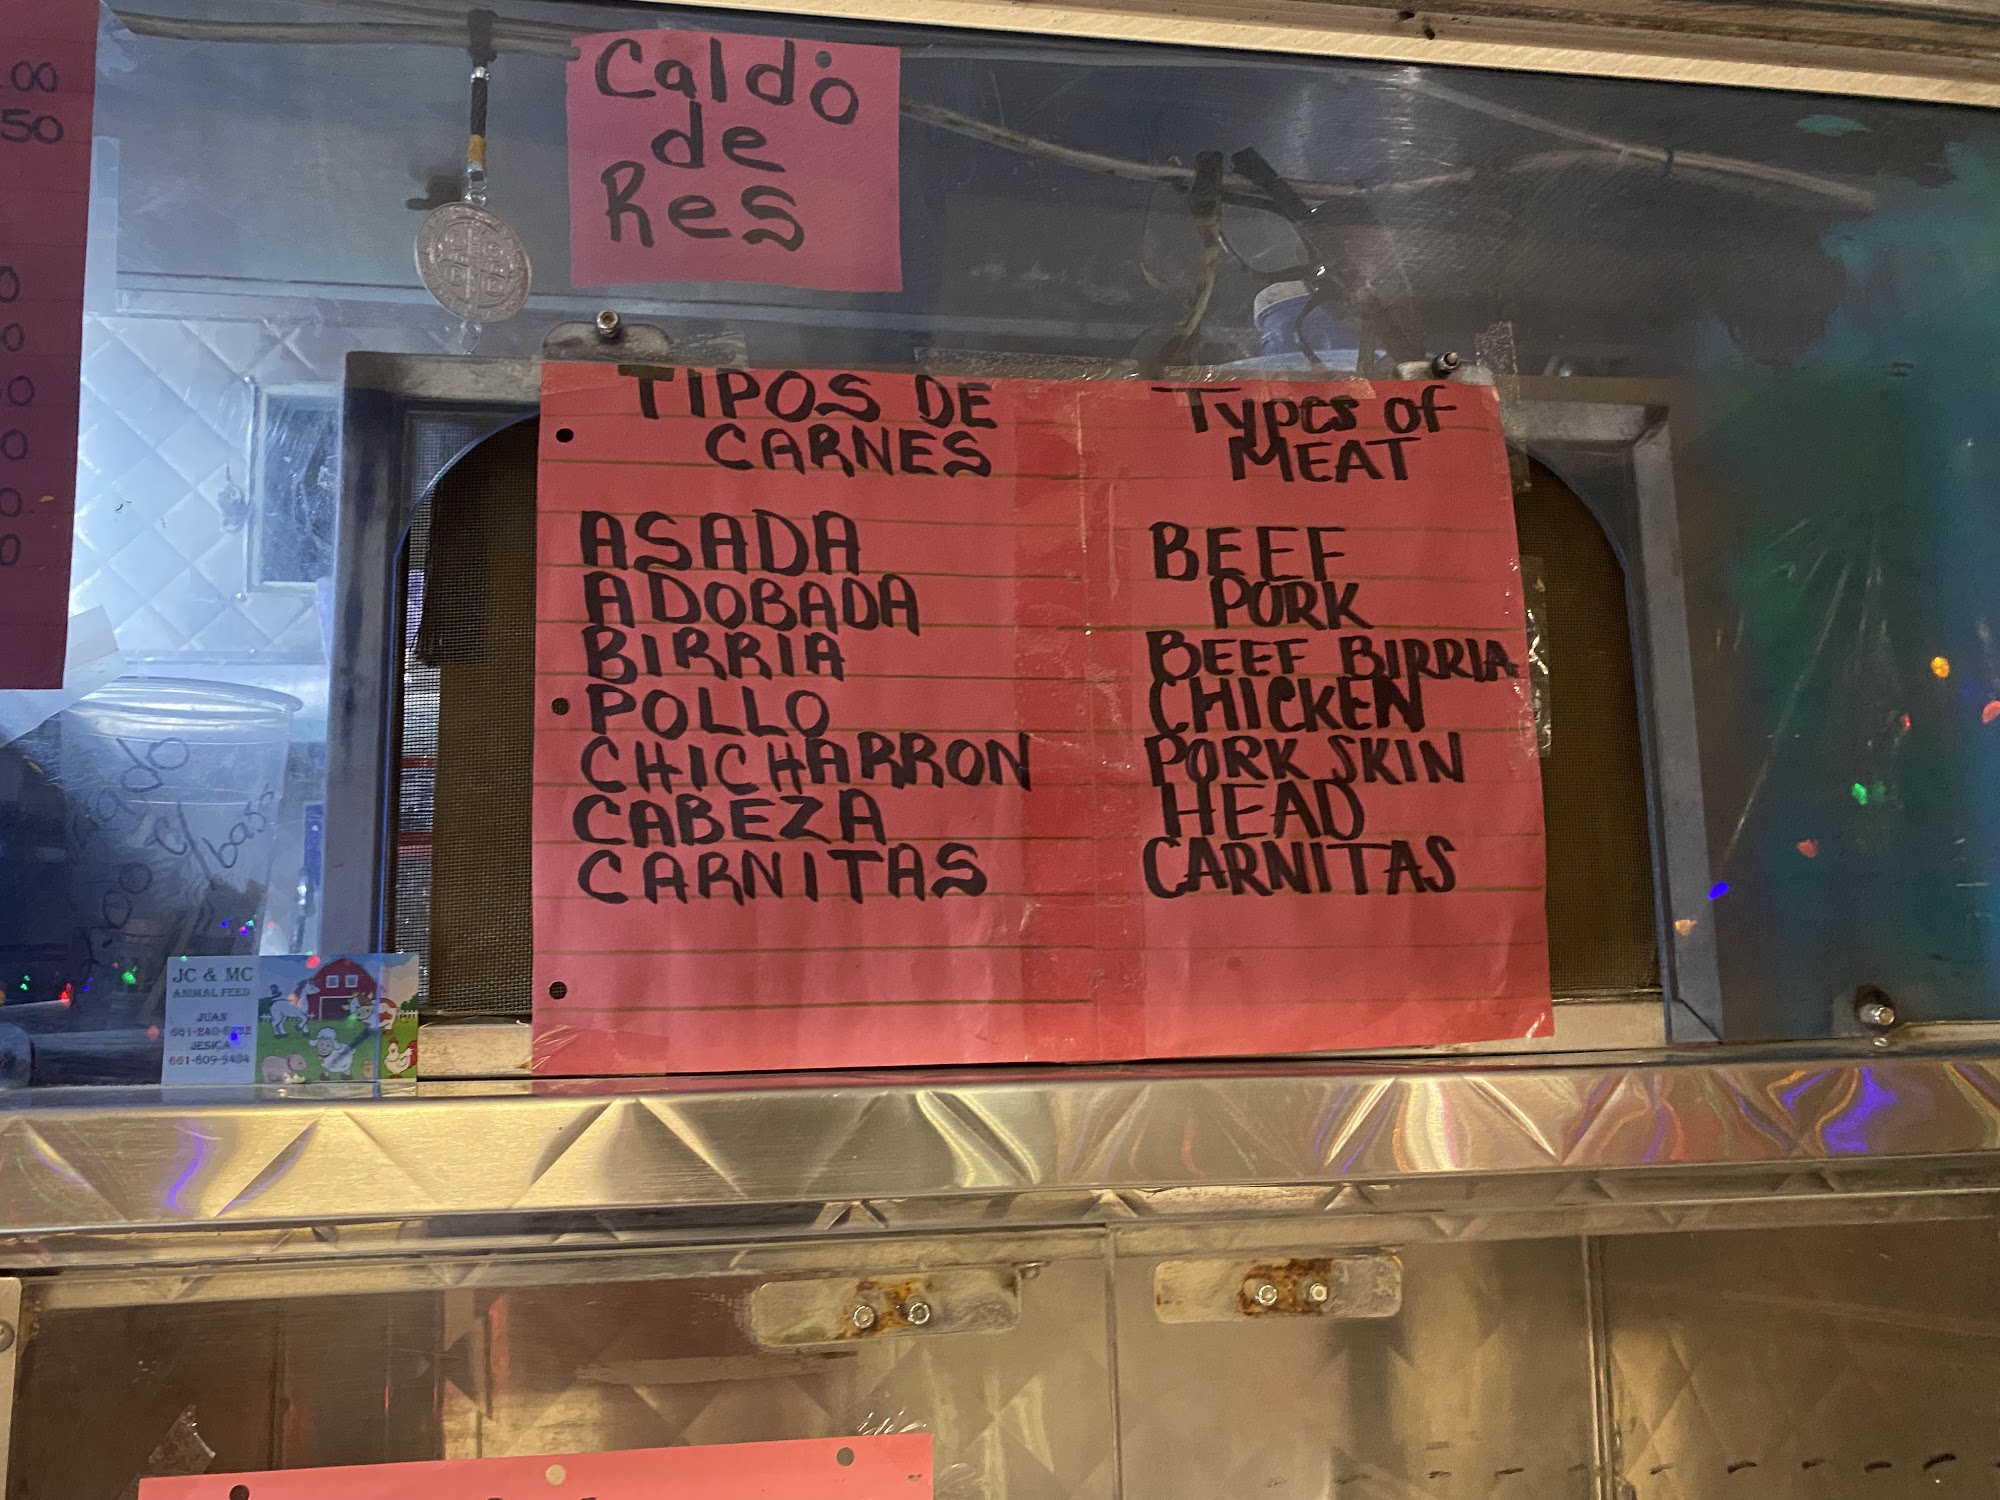 .00
50
Caldo
de
Res
TIPOS DE
CARNES
ASADA
ADOBADA
BIRRIA
POLLO
CHICHARRON
CABEZA
CARNITAS
Types of
MEAT
BEEF
PORK
BEEF BIRRIA
CHICKEN
PORK SKIN
HEAD
CARNITAS
JC & MC
ANIMAL FEED
JUAN
JESICA
661-809-9404